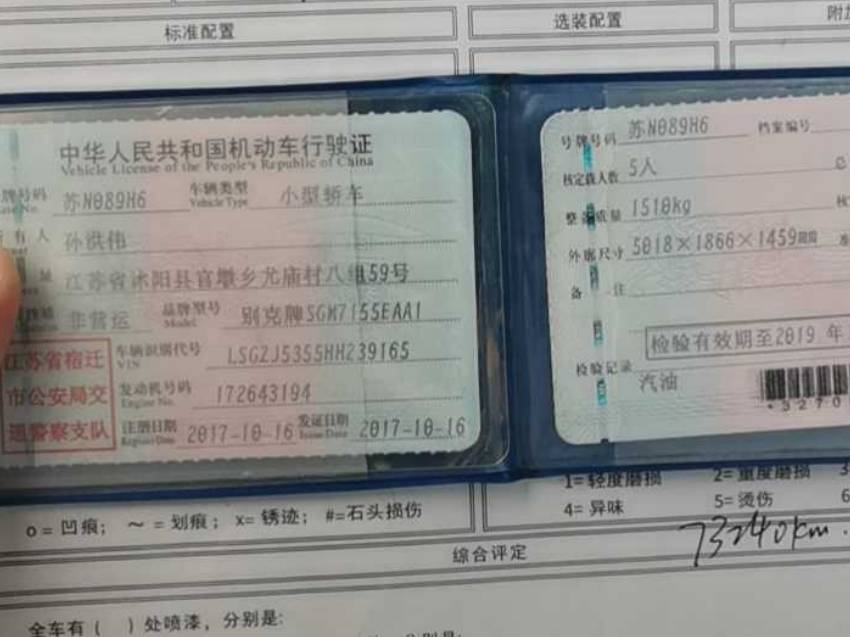 标准配置
选装配置
附加
中华人民共和国机动车行驶证
Vehicle License of the People's Republic of China
牌号码 苏N089H6 车辆类型 Vehicle Type 小型轿车
有人 孙洪伟
江苏省沭阳县官墩乡尤庙村八组59号
非营运 品牌型号 Model 别克牌SGM7155EAA1
江苏省宿迁
市公安局交
通警察支队
车辆识别代号 VIN LSGZJ5355HH239165
发动机号码 Engine No. 172643194
注册日期 Register Date 2017-10-16 发证日期 Issue Date 2017-10-16
号牌号码 苏N089H6 档案编号
核定载人数 5人
整备质量 1510kg
外廓尺寸 5018×1866×1459mm
备注
检验有效期至2019年
检验记录
汽油
*3270
o=凹痕; ~=划痕; x=锈迹; #=石头损伤
1=轻度磨损 2=重度磨损 3
4=异味 5=烫伤 6
综合评定
73240km.
全车有( )处喷漆,分别是: